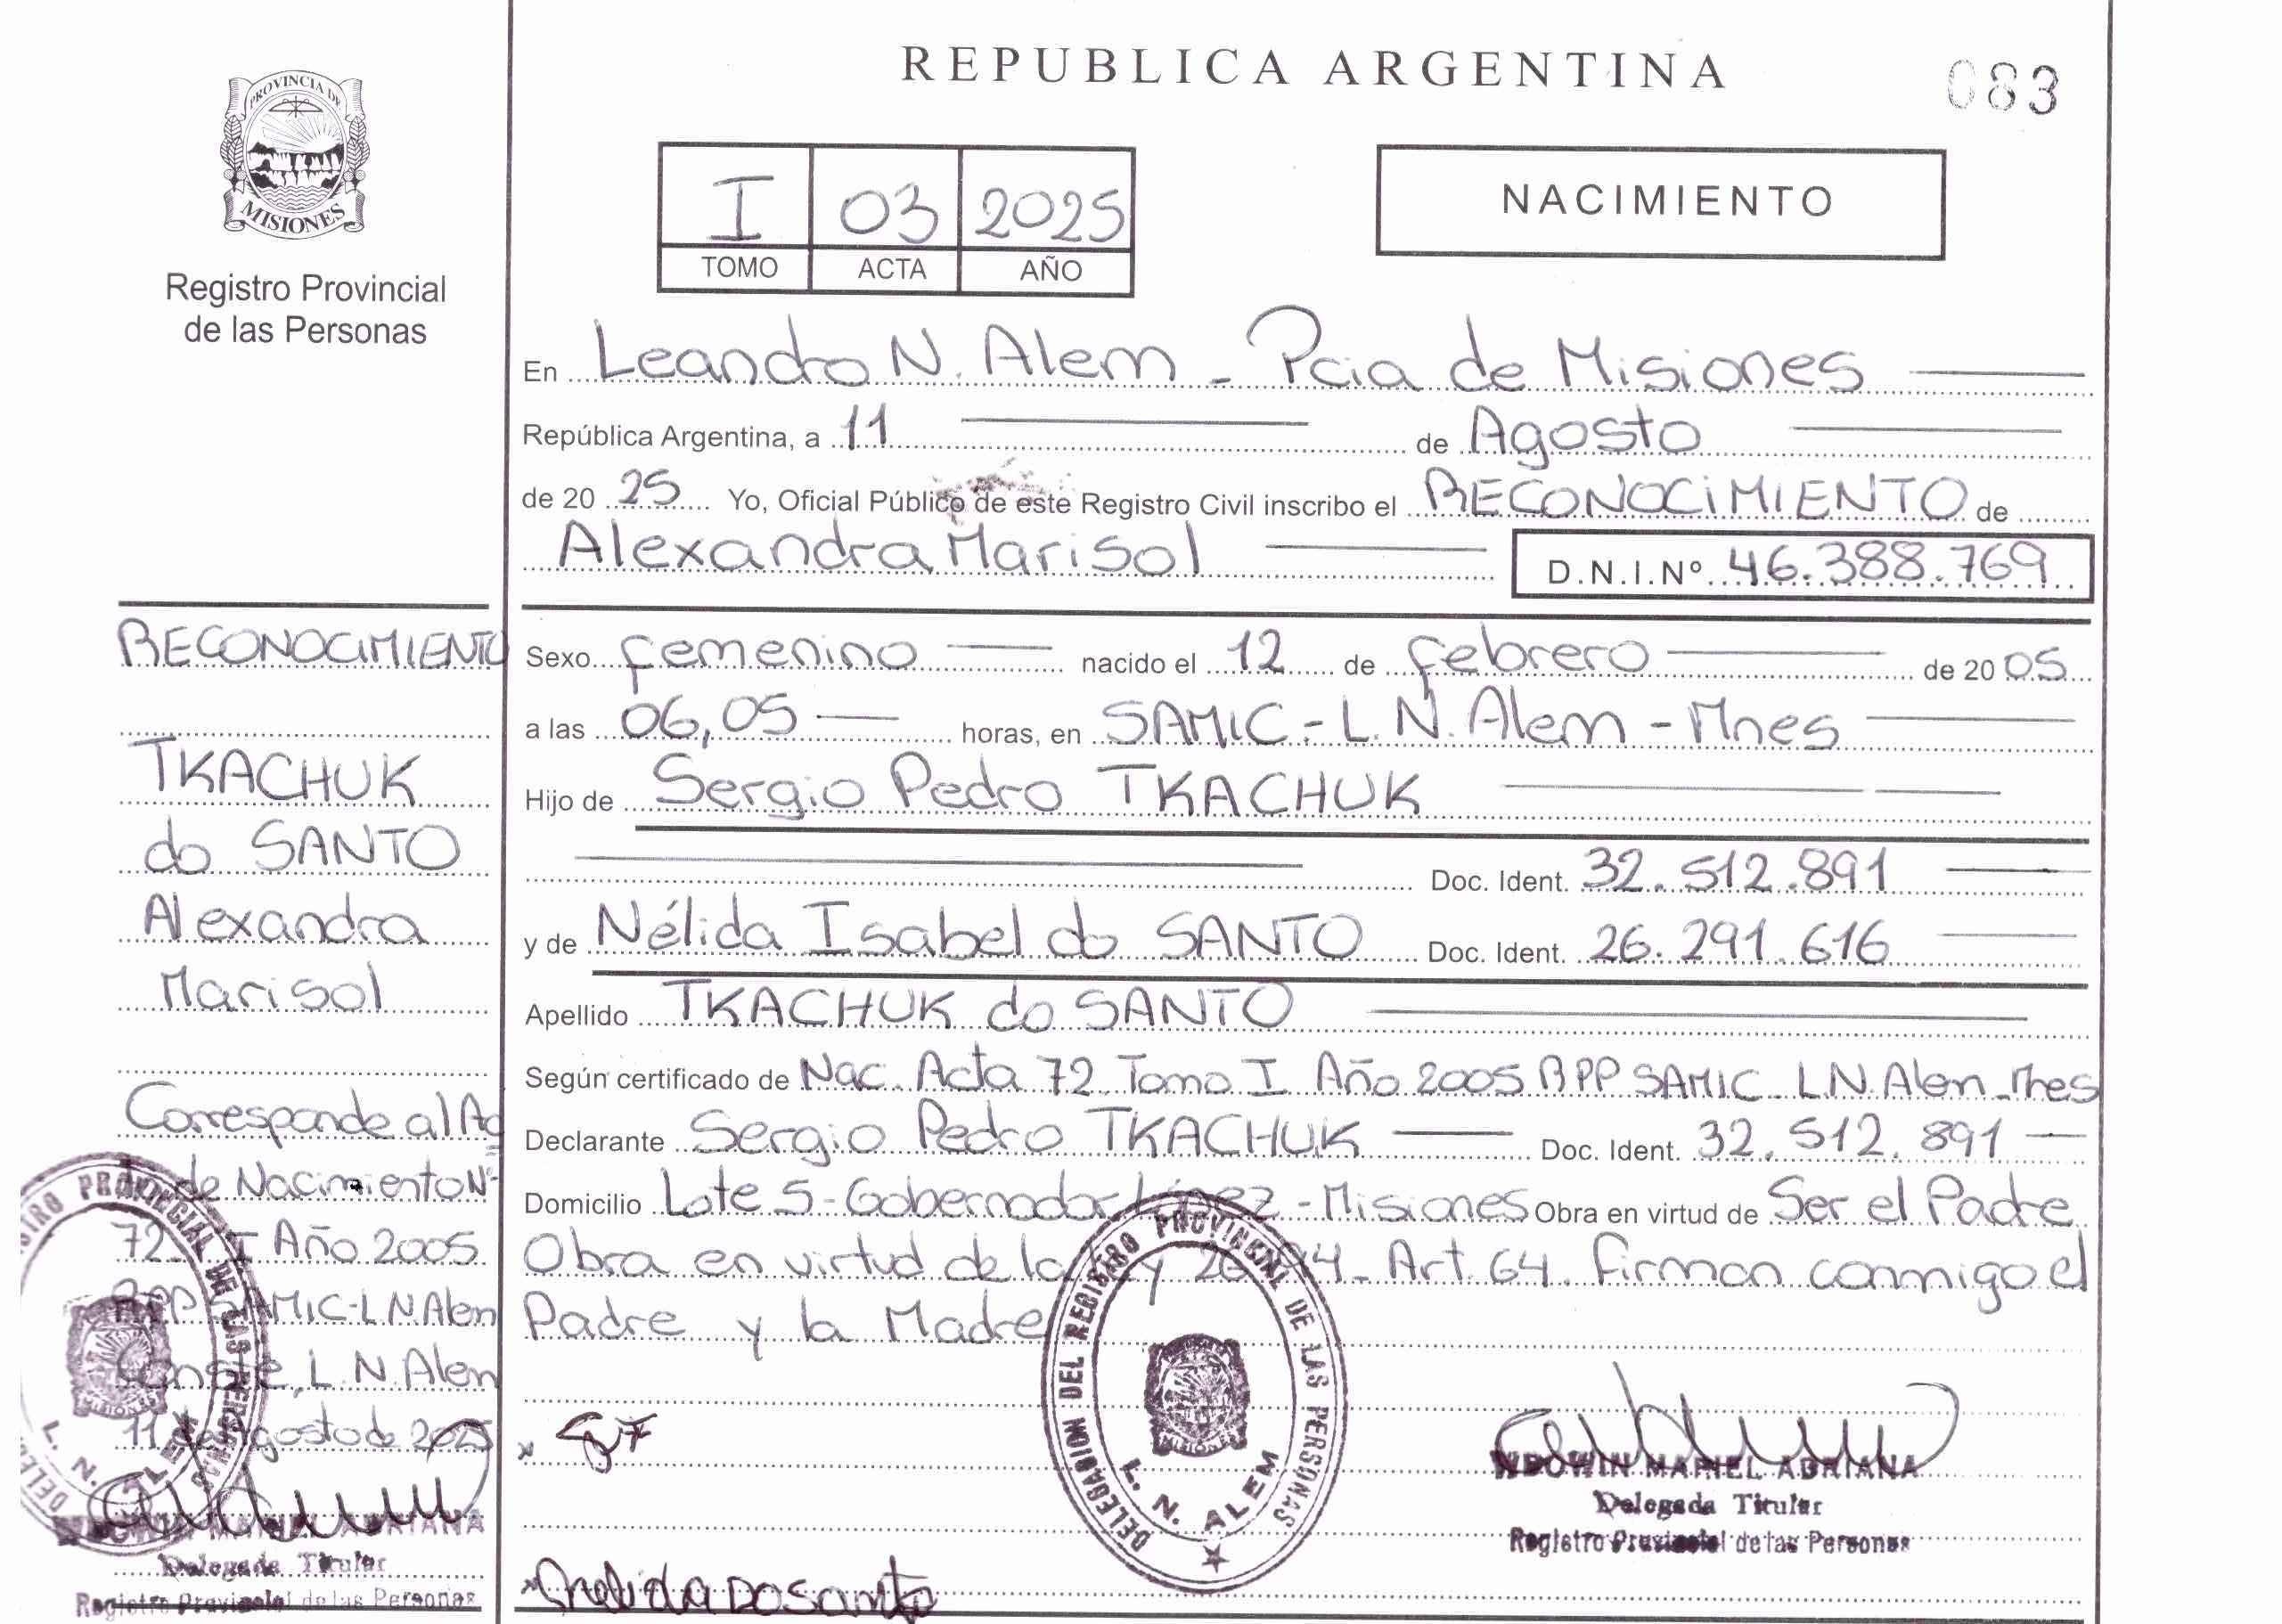 REPUBLICA ARGENTINA
083
PROVINCIA DE
MISIONES
Registro Provincial
de las Personas
I 03 2025
TOMO ACTA AÑO
NACIMIENTO
En Leandro N. Alem - Pcia de Misiones
República Argentina, a 11 de Agosto
de 20 25 Yo, Oficial Público de este Registro Civil inscribo el RECONOCIMIENTO de
Alexandra Marisol D.N.I.Nº 46.388.769
Sexo femenino nacido el 12 de febrero de 20 05
a las 06,05 horas, en SAMIC - L.N. Alem - Mnes
Hijo de Sergio Pedro TKACHUK
Doc. Ident. 32.512.891
y de Nélida Isabel do SANTO Doc. Ident. 26.291.616
Apellido TKACHUK do SANTO
Según certificado de Nac. Acta 72 Tomo I Año 2005 RPP SAMIC - L.N. Alem - Mnes
Declarante Sergio Pedro TKACHUK Doc. Ident. 32.512.891
Domicilio Lote 5 - Gobernador López - Misiones Obra en virtud de Ser el Padre
Obra en virtud de la Art. 64. Firman conmigo el
Padre y la Madre
RECONOCIMIENTO
TKACHUK
do SANTO
Alexandra
Marisol
Corresponde al Ac
de Nacimiento Nº
72 I Año 2005
RPP SAMIC - L.N Alem
Conste, L.N. Alem
11 de Agosto de 2025
MARIEL ADRIANA
Delegada Titular
Registro Provincial de las Personas
DELEGACION DEL REGISTRO PROVINCIAL DE LAS PERSONAS
MISIONES
L. N. ALEM
Nelida Do Santo
MARIEL ADRIANA
Delegada Titular
Registro Provincial de las Personas